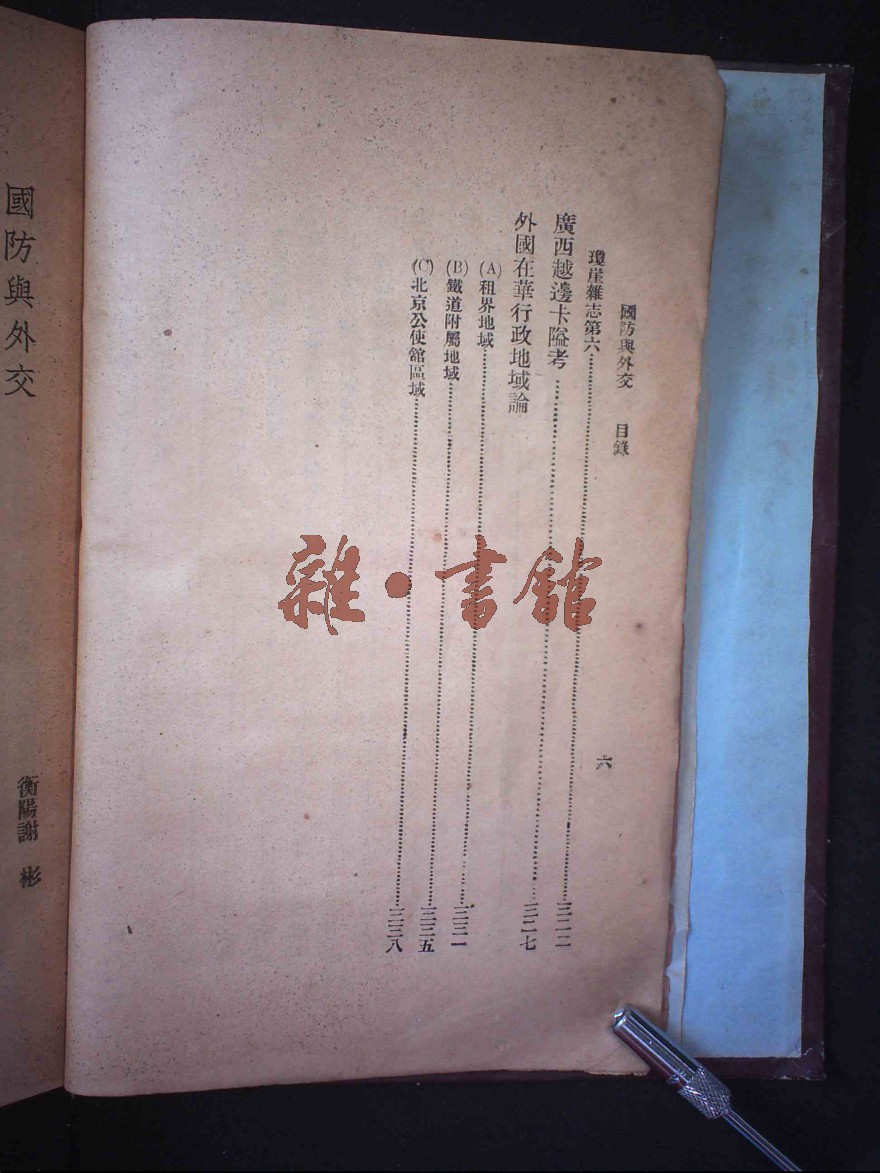 國防與外交　目錄　六
瓊崖雜志第六……三二二
廣西越邊卡隘考……三二七
外國在華行政地域論
(A)租界地域……三三一
(B)鐵道附屬地域……三三五
(C)北京公使館區域……三三八
國防與外交
衡陽謝　彬
雜·書館